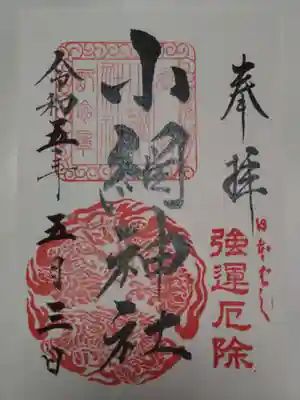 奉拝
日本ばし
強運厄除
小網神社
令和五年
五月三日